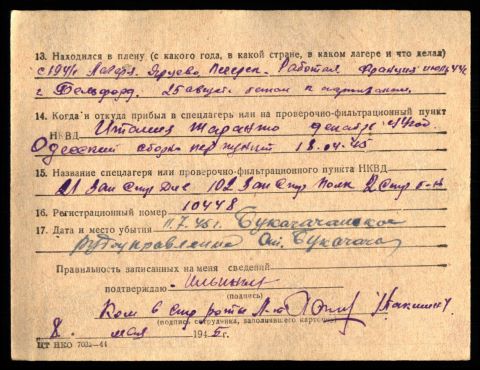 13. Находился в плену (с какого года, в какой стране, в каком лагере и что делал)
с 1941г Лагеря. Работал Франция июль 44г
г Бельфорд. 25 августа к партизанам.
14. Когда и откуда прибыл в спецлагерь или на проверочно-фильтрационный пункт
НКВД Италия Таранто декабрь 44год.
Одесский сборно пер пункт 18.04.45
15. Название спецлагеря или проверочно-фильтрационного пункта НКВД
21 Зап Стр Див 102 Зап Стр Полк 2 Стр б-н
16. Регистрационный номер 10448
17. Дата и место убытия 11.7.45г. Букачачинское
рудоуправление ст. Букачача
Правильность записанных на меня сведений
подтверждаю Ильиных
(подпись)
Ком в стр роты Л-т
(подпись сотрудника, заполнившего карточку)
8. мая 1945г.
ЦТ НКО 7032—44